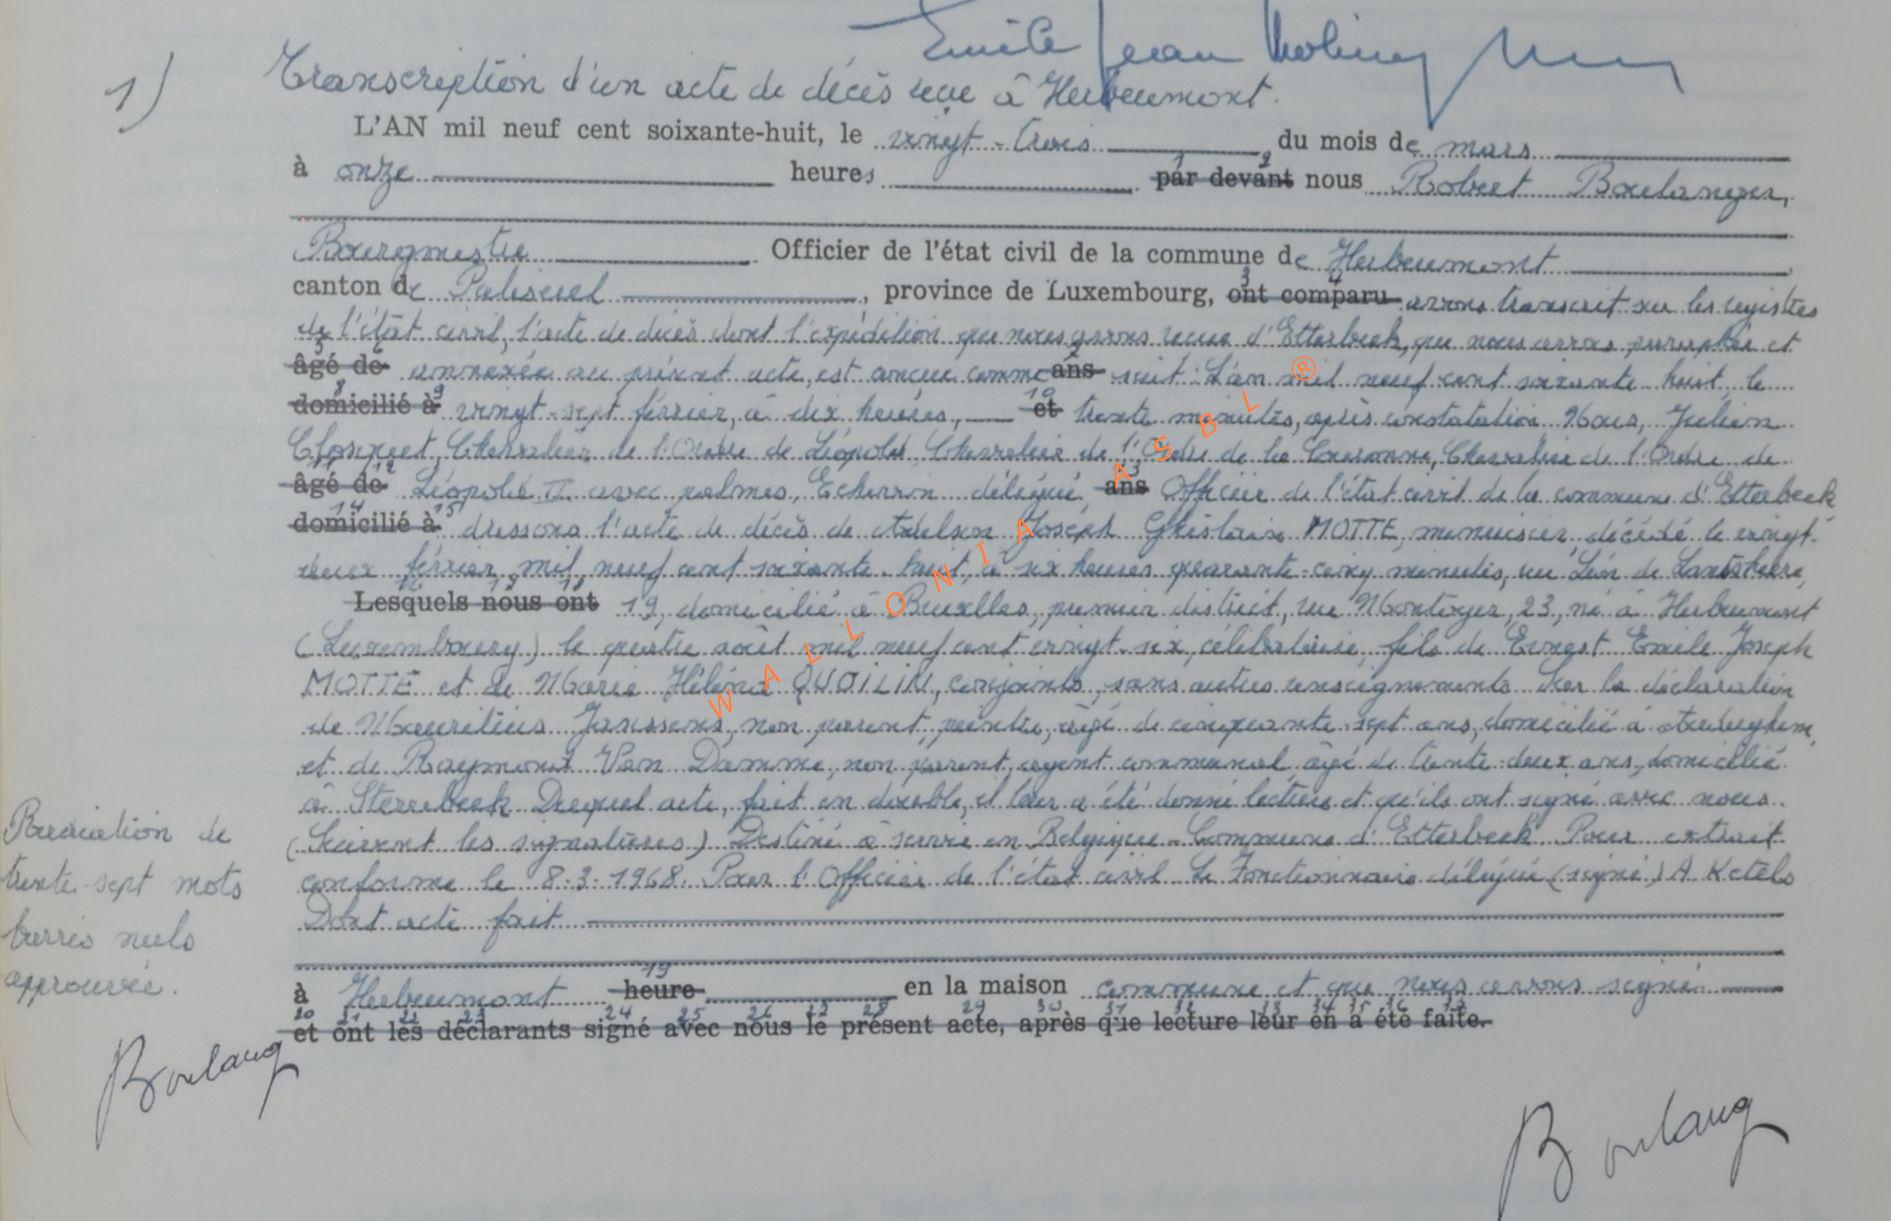 Emile Jean
1) Transcription d'un acte de décès reçu à Herbeumont.
L'AN mil neuf cent soixante-huit, le vingt-trois du mois de mars
à onze heures par devant nous Robert Boulanger,
1 2
Bourgmestre Officier de l'état civil de la commune de Herbeumont
canton de Paliseul, province de Luxembourg, ont comparu avons transcrit sur les registres
3 4
de l'état civil, l'acte de décès dont l'expédition que nous avons reçue d'Etterbeek, que nous avons paraphée et
âgé de annexée au présent acte, est conçue comme ans suit : L'an mil neuf cent soixante-huit, le
5 6 7
domicilié à vingt-sept février, à dix heures, et trente minutes, après constatation Nous, Julien
8 9 10
Closquet, Chevalier de l'Ordre de Léopold, Chevalier de l'Ordre de la Couronne, Chevalier de l'Ordre de
âgé de Léopold II avec palmes, Echevin délégué ans Officier de l'état civil de la commune d'Etterbeek
11 12 13
domicilié à dressons l'acte de décès de Adelson Joseph Ghislain MOTTE, menuisier, décédé le vingt-
14 15
deux février mil neuf cent soixante-huit, à six heures quarante-cinq minutes, rue Léon de Lantsheere,
Lesquels nous ont 19, domicilié à Bruxelles, premier district, rue Montoyer, 23, né à Herbeumont
16 17 18
(Luxembourg) le quatre août mil neuf cent vingt-six, célibataire, fils de Ernest Emile Joseph
MOTTE et de Marie Hélène QUOILIN, conjoints, sans autres renseignements Sur la déclaration
de Mauritius Janssens, non parent, peintre, âgé de cinquante-sept ans, domicilié à Auderghem,
et de Raymond Van Damme, non parent, agent communal âgé de trente-deux ans, domicilié
à Sterrebeek Duquel acte, fait en double, il leur a été donné lecture et qu'ils ont signé avec nous.
(Suivent les signatures) Destiné à servir en Belgique - Commune d'Etterbeek Pour extrait
conforme le 8-3-1968. Pour l'Officier de l'état civil Le Fonctionnaire délégué (signé) A Ketels
Dont acte fait
à Herbeumont heure en la maison commune et que nous avons signé.
19
et ont les déclarants signé avec nous le présent acte, après que lecture leur en a été faite.
20 21 22 23 24 25 26 27 28 29 30 31 32 33 34 35 36 37
Radiation de
trente-sept mots
barrés nuls
approuvée.
Boulang
Boulang
WALLONIA ASBL ®